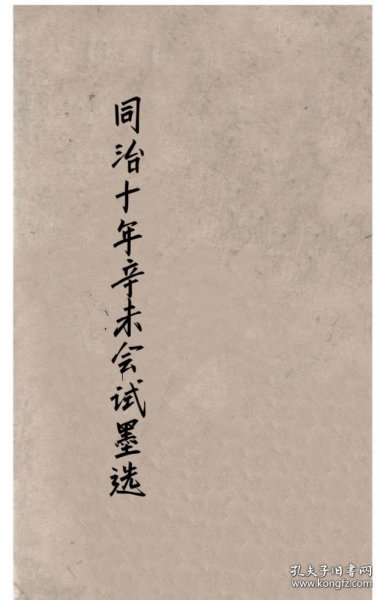 同治十年辛未会试墨选
孔夫子旧书网
www.kongfz.com